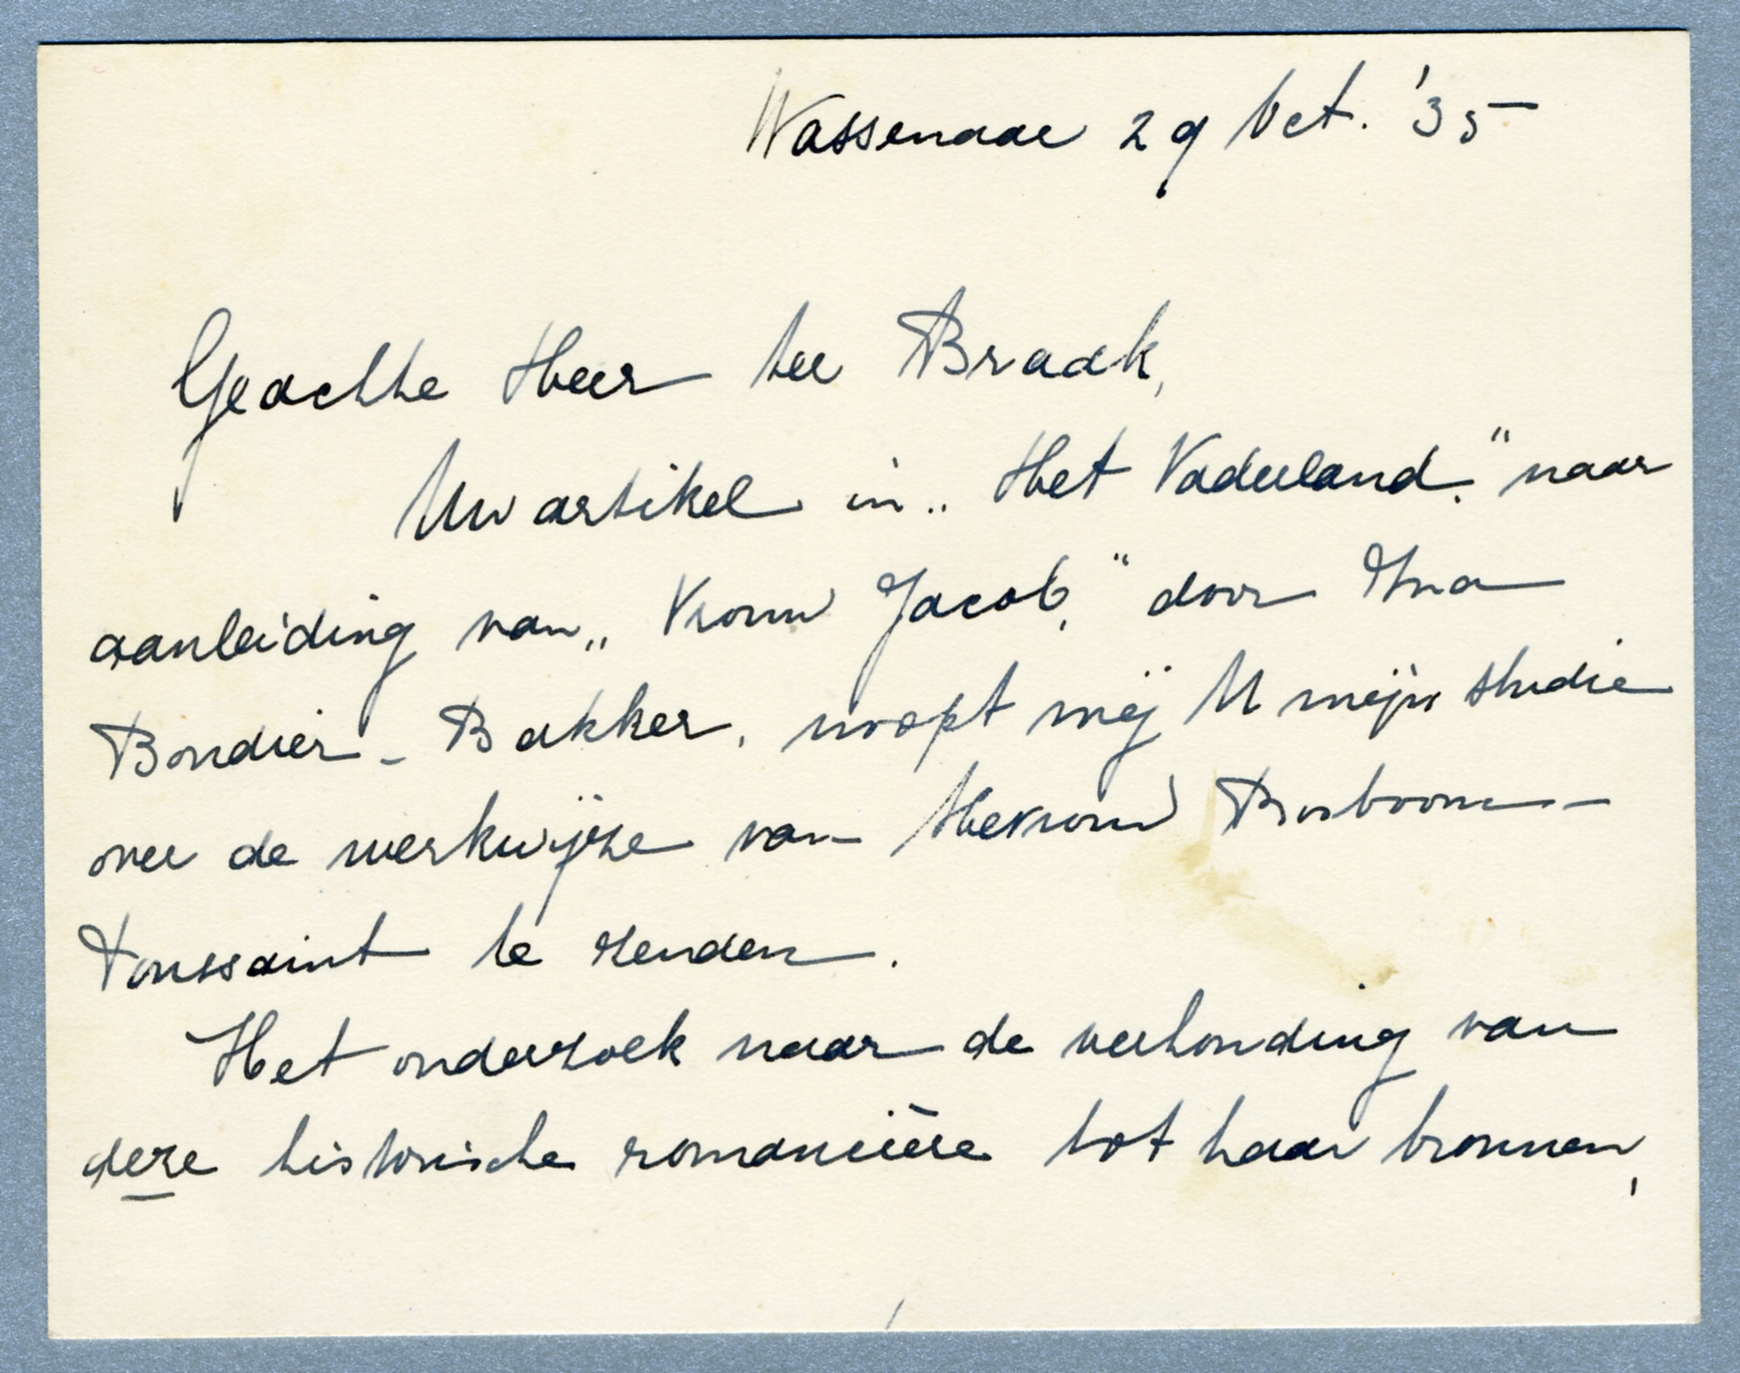 Wassenaar 29 Oct. '35
Geachte Heer ter Braak,
Uw artikel in „Het Vaderland." naar
aanleiding van „Vrouw Jacob," door Ina
Boudier-Bakker, noopt mij U mijn studie
over de werkwijze van Mevrouw Bosboom-
Toussaint te zenden.
Het onderzoek naar de verhouding van
deze historische romancière tot haar bronnen,